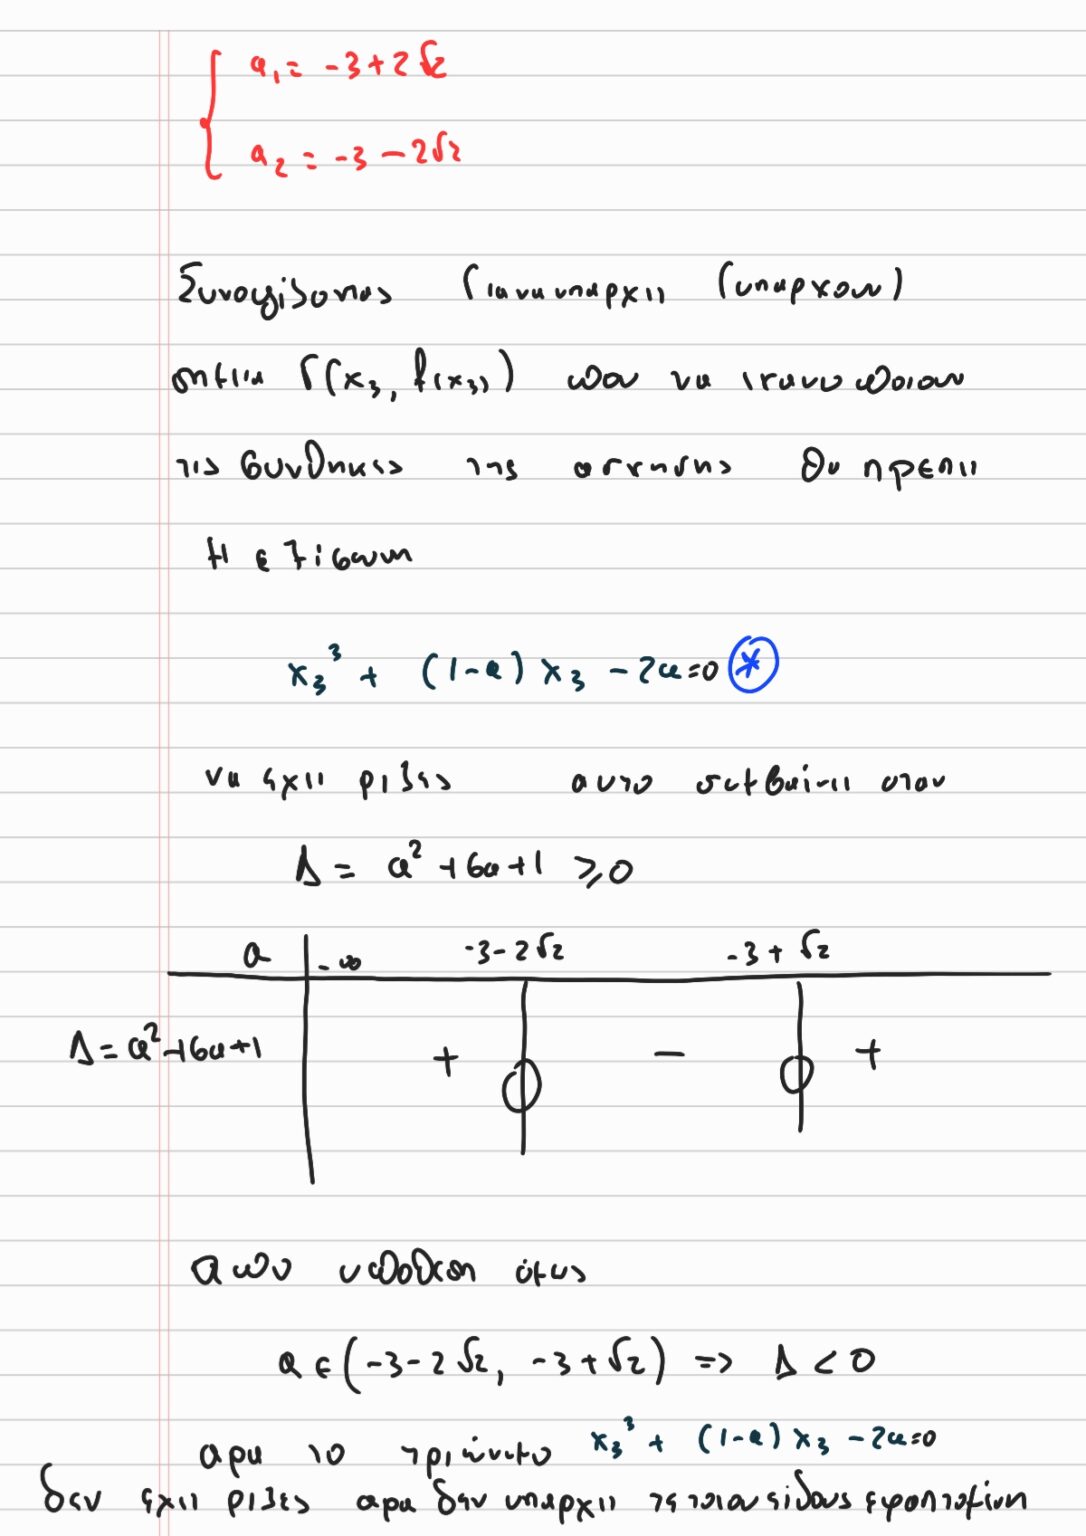 a₁ = -3+2√2
a₂ = -3-2√2
Συνοψίζοντας Για να υπαρχει (υπαρχουν)
σημεια Γ(x₃, f(x₃)) που να ικανοποιουν
τις συνθηκες της ασκησης θα πρεπει
Η εξισωση
x₃³ + (1-a) x₃ - 2a=0 *
να εχει ριζες αυτο συμβαίνει οταν
Δ = a² +6a+1 ≥0
a -∞ -3-2√2 -3+√2
Δ= a²+6a+1 + - +
απο υποθεση όμως
a ∈ (-3-2√2, -3+√2) => Δ < 0
αρα το τριώνυμο x₃³ + (1-a) x₃ - 2a=0
δεν εχει ριζες αρα δεν υπαρχει τετοιου ειδους εφαπτομένη